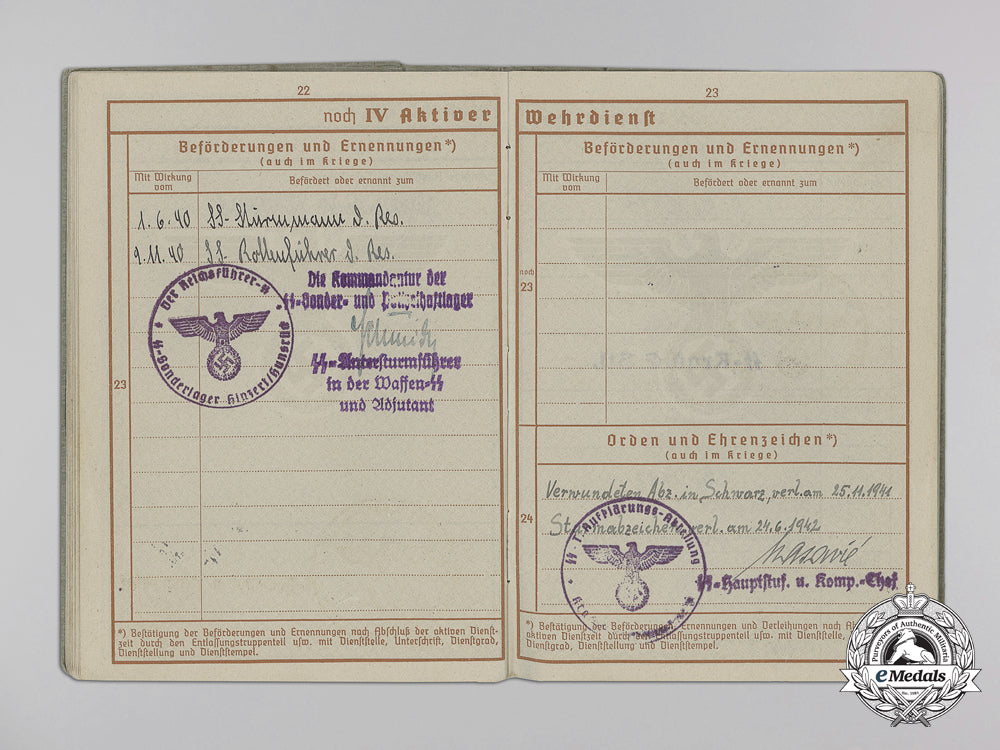 22
noch IV Aktiver
Beförderungen und Ernennungen*)
(auch im Kriege)
Mit Wirkung vom
Befördert oder ernannt zum
1.6.40 SS-Sturmmann d. Res.
9.11.40 SS-Rottenführer d. Res.
Der Reichsführer-SS
SS-Sonderlager Hinzert/Hunsrück
Die Kommandantur der
SS-Sonder- und Polizeihaftlager
SS-Untersturmführer
in der Waffen-SS
und Adjutant
23
*) Bestätigung der Beförderungen und Ernennungen nach Abschluß der aktiven Dienst-
zeit durch den Entlassungstruppenteil usw. mit Dienststelle, Unterschrift, Dienstgrad,
Dienststellung und Dienststempel.
23
Wehrdienst
Beförderungen und Ernennungen*)
(auch im Kriege)
Mit Wirkung vom
Befördert oder ernannt zum
noch
23
Orden und Ehrenzeichen*)
(auch im Kriege)
Verwundeten Abz. in Schwarz, verl. am 25.11.1941
24
Sturmabzeichen verl. am 24.6.1942
SS Aufklärungs-Abteilung
SS-Hauptstuf. u. Komp.-Chef
*) Bestätigung der Beförderungen, Ernennungen und Verleihungen nach
aktiven Dienstzeit durch Entlassungstruppenteil usw. mit Dienststelle,
Dienstgrad, Dienststellung und Dienststempel.
Purveyors of Authentic Militaria
eMedals